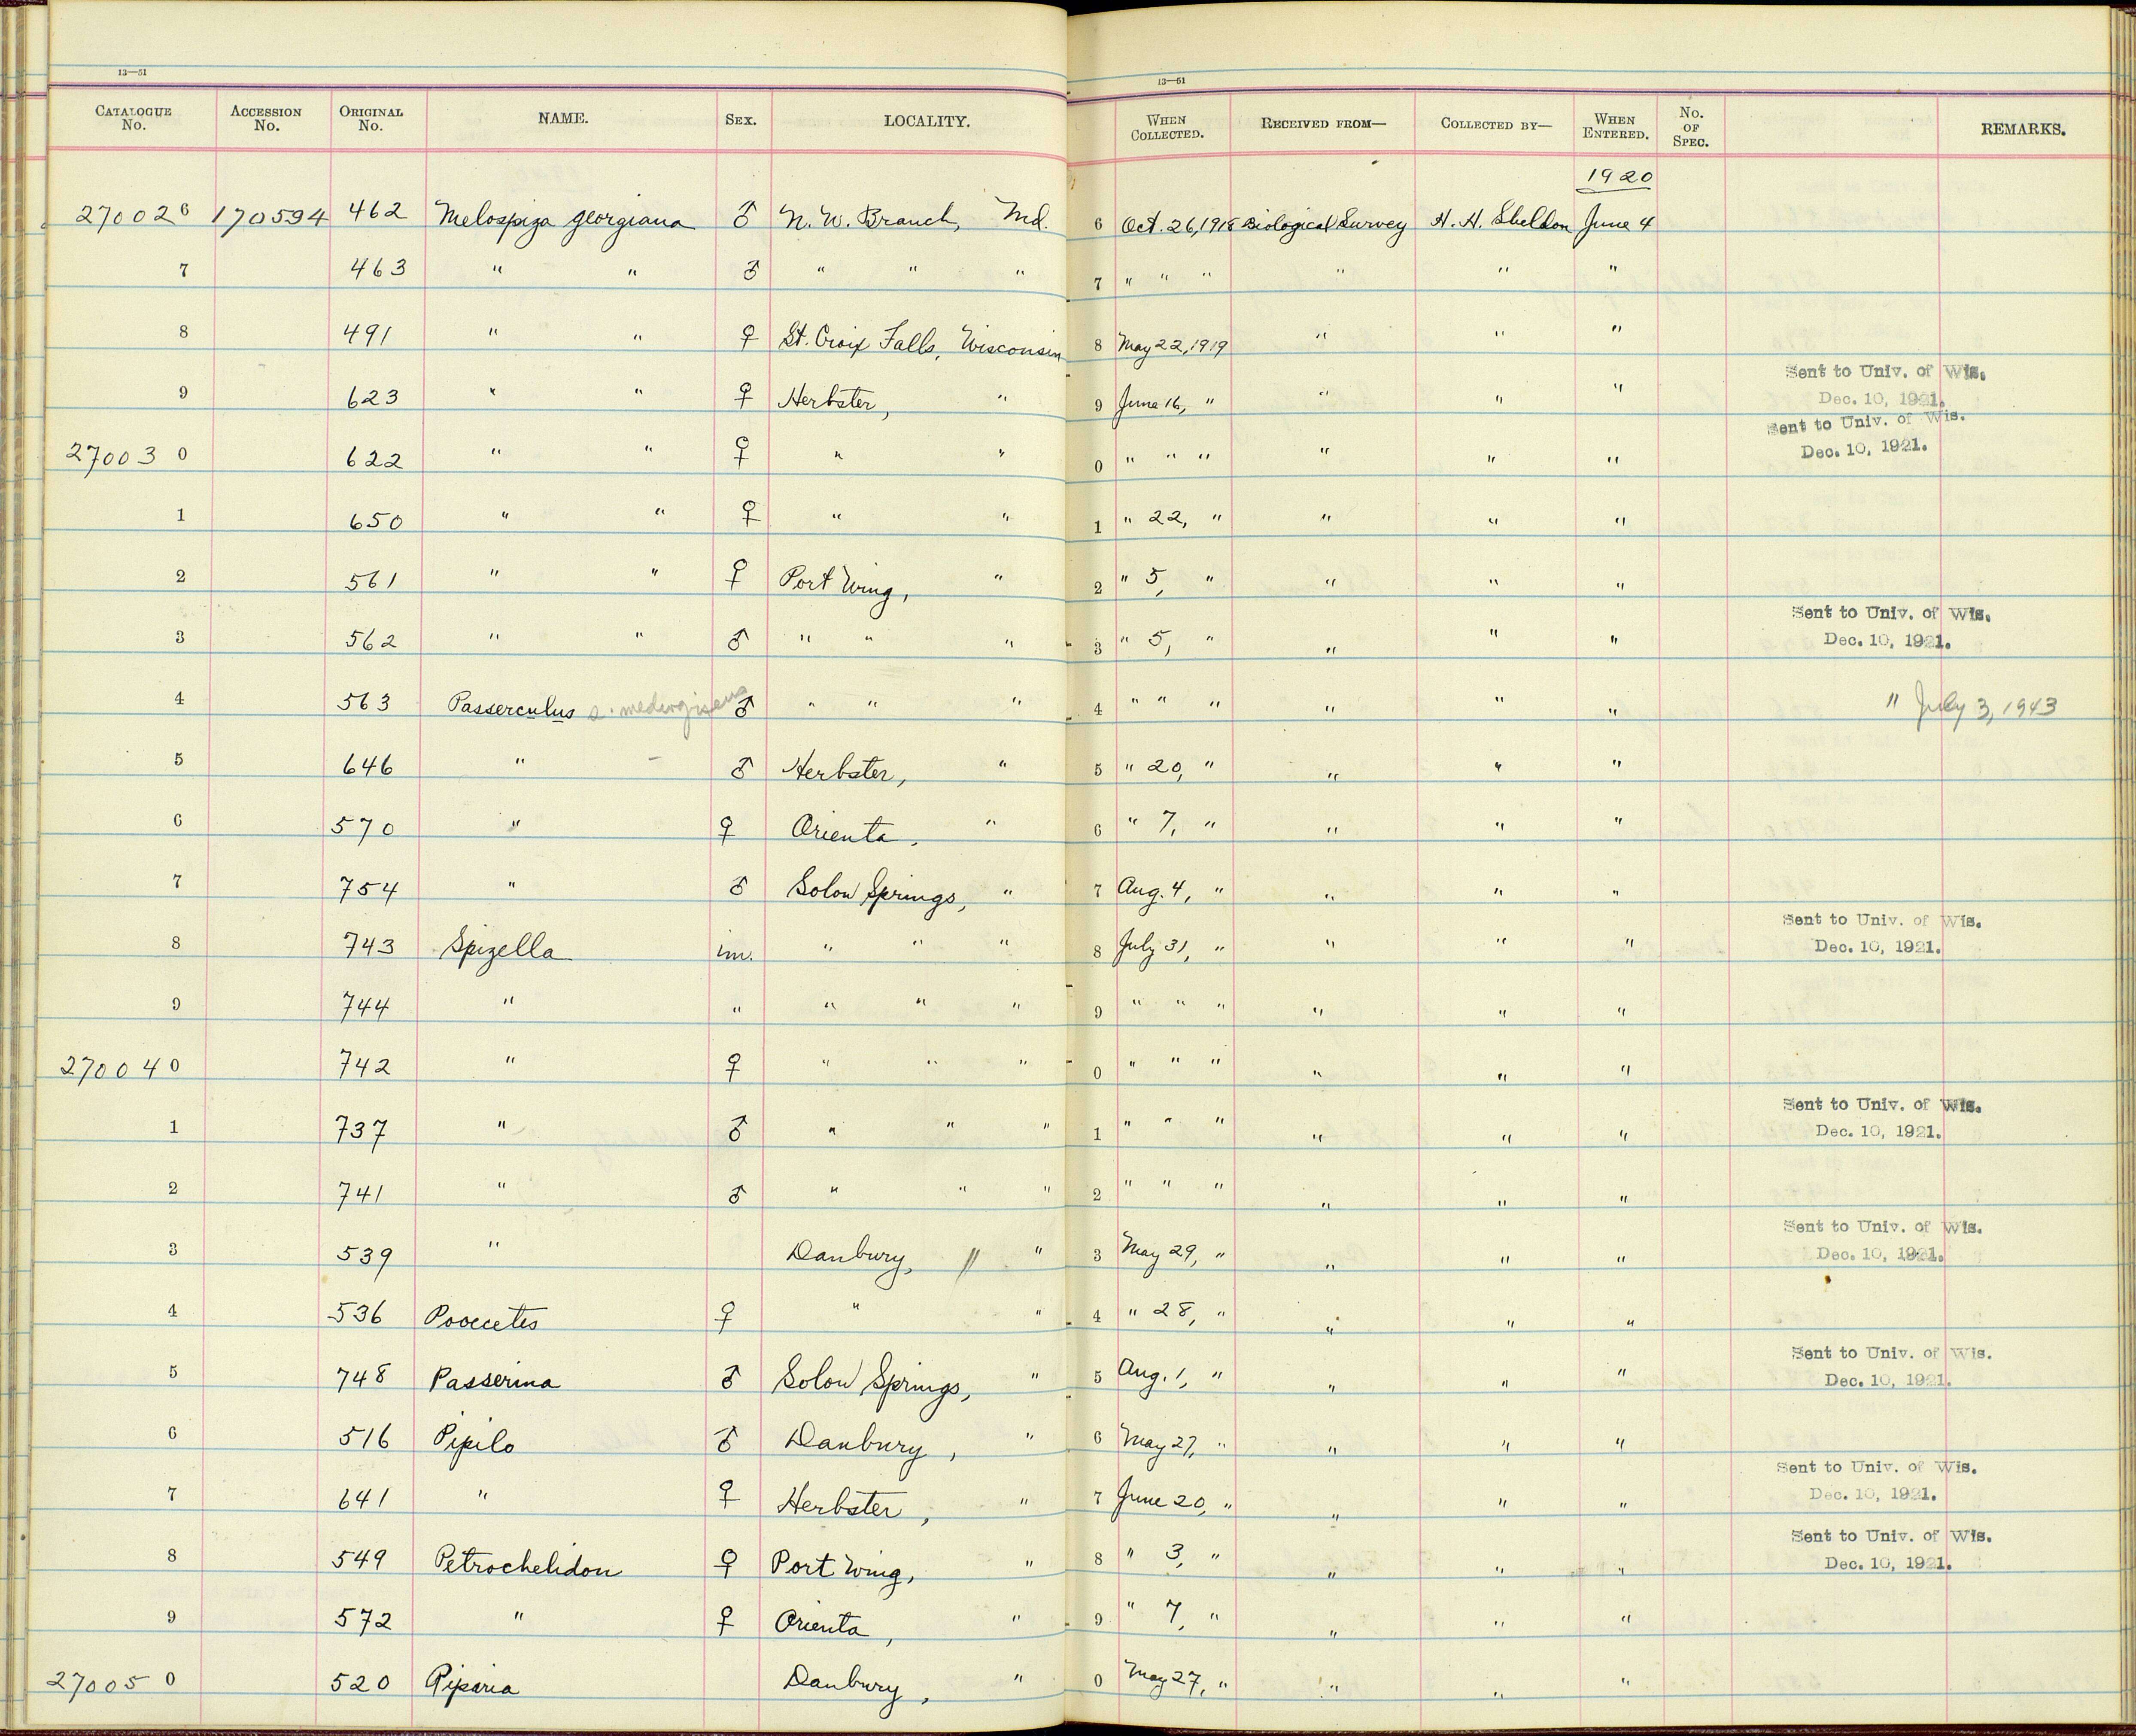 13—51
13—51
CATALOGUE No. ACCESSION No. ORIGINAL No. NAME. SEX. LOCALITY. WHEN COLLECTED. RECEIVED FROM— COLLECTED BY— WHEN ENTERED. NO. OF SPEC. REMARKS.
1920
270026 170594 462 Melospiza georgiana ♂ N. W. Branch, Md. 6 Oct. 26, 1918 Biological Survey H. H. Sheldon June 4
7 463 " " ♂ " " " 7 " " " " " "
8 491 " " ♀ St. Croix Falls, Wisconsin 8 May 22, 1919 " " "
9 623 " " ♀ Herbster, " 9 June 16, " " " " Sent to Univ. of Wis. Dec. 10, 1921.
270030 622 " " ♀ " " 0 " " " " " " Sent to Univ. of Wis. Dec. 10, 1921.
1 650 " " ♀ " " 1 " 22, " " " "
2 561 " " ♀ Port Wing, " 2 " 5, " " " "
3 562 " " ♂ " " " 3 " 5, " " " " Sent to Univ. of Wis. Dec. 10, 1921.
4 563 Passerculus ♂ " " " 4 " " " " " " " July 3, 1943
5 646 " ♂ Herbster, " 5 " 20, " " " "
6 570 " ♀ Orienta, " 6 " 7, " " " "
7 754 " ♂ Solon Springs, " 7 Aug. 4, " " " "
8 743 Spizella im. " " " 8 July 31, " " " " Sent to Univ. of Wis. Dec. 10, 1921.
9 744 " " " " " 9 " " " " " "
270040 742 " ♀ " " " 0 " " " " " "
1 737 " ♂ " " " 1 " " " " " " Sent to Univ. of Wis. Dec. 10, 1921.
2 741 " ♂ " " " 2 " " " " " "
3 539 " Danbury, " 3 May 29, " " " " Sent to Univ. of Wis. Dec. 10, 1921.
4 536 Pooecetes ♀ " " 4 " 28, " " " "
5 748 Passerina ♂ Solon Springs, " 5 Aug. 1, " " " " Sent to Univ. of Wis. Dec. 10, 1921.
6 516 Pipilo ♂ Danbury, " 6 May 27, " " " "
7 641 " ♀ Herbster, " 7 June 20, " " " " Sent to Univ. of Wis. Dec. 10, 1921.
8 549 Petrochelidon ♀ Port Wing, " 8 " 3, " " " " Sent to Univ. of Wis. Dec. 10, 1921.
9 572 " ♀ Orienta, " 9 " 7, " " " "
270050 520 Riparia Danbury, " 0 May 27, " " " "